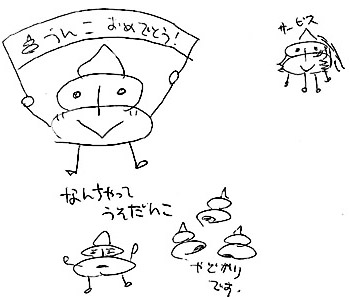 うんこ おめでとう！
サービス
なんちゃって
うそだんこ
やどかり
です。